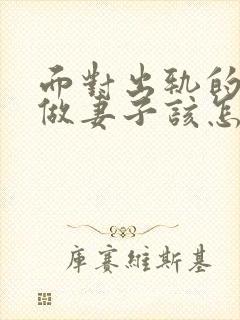 而對出軌的
做妻子該怎
庫賽維斯基